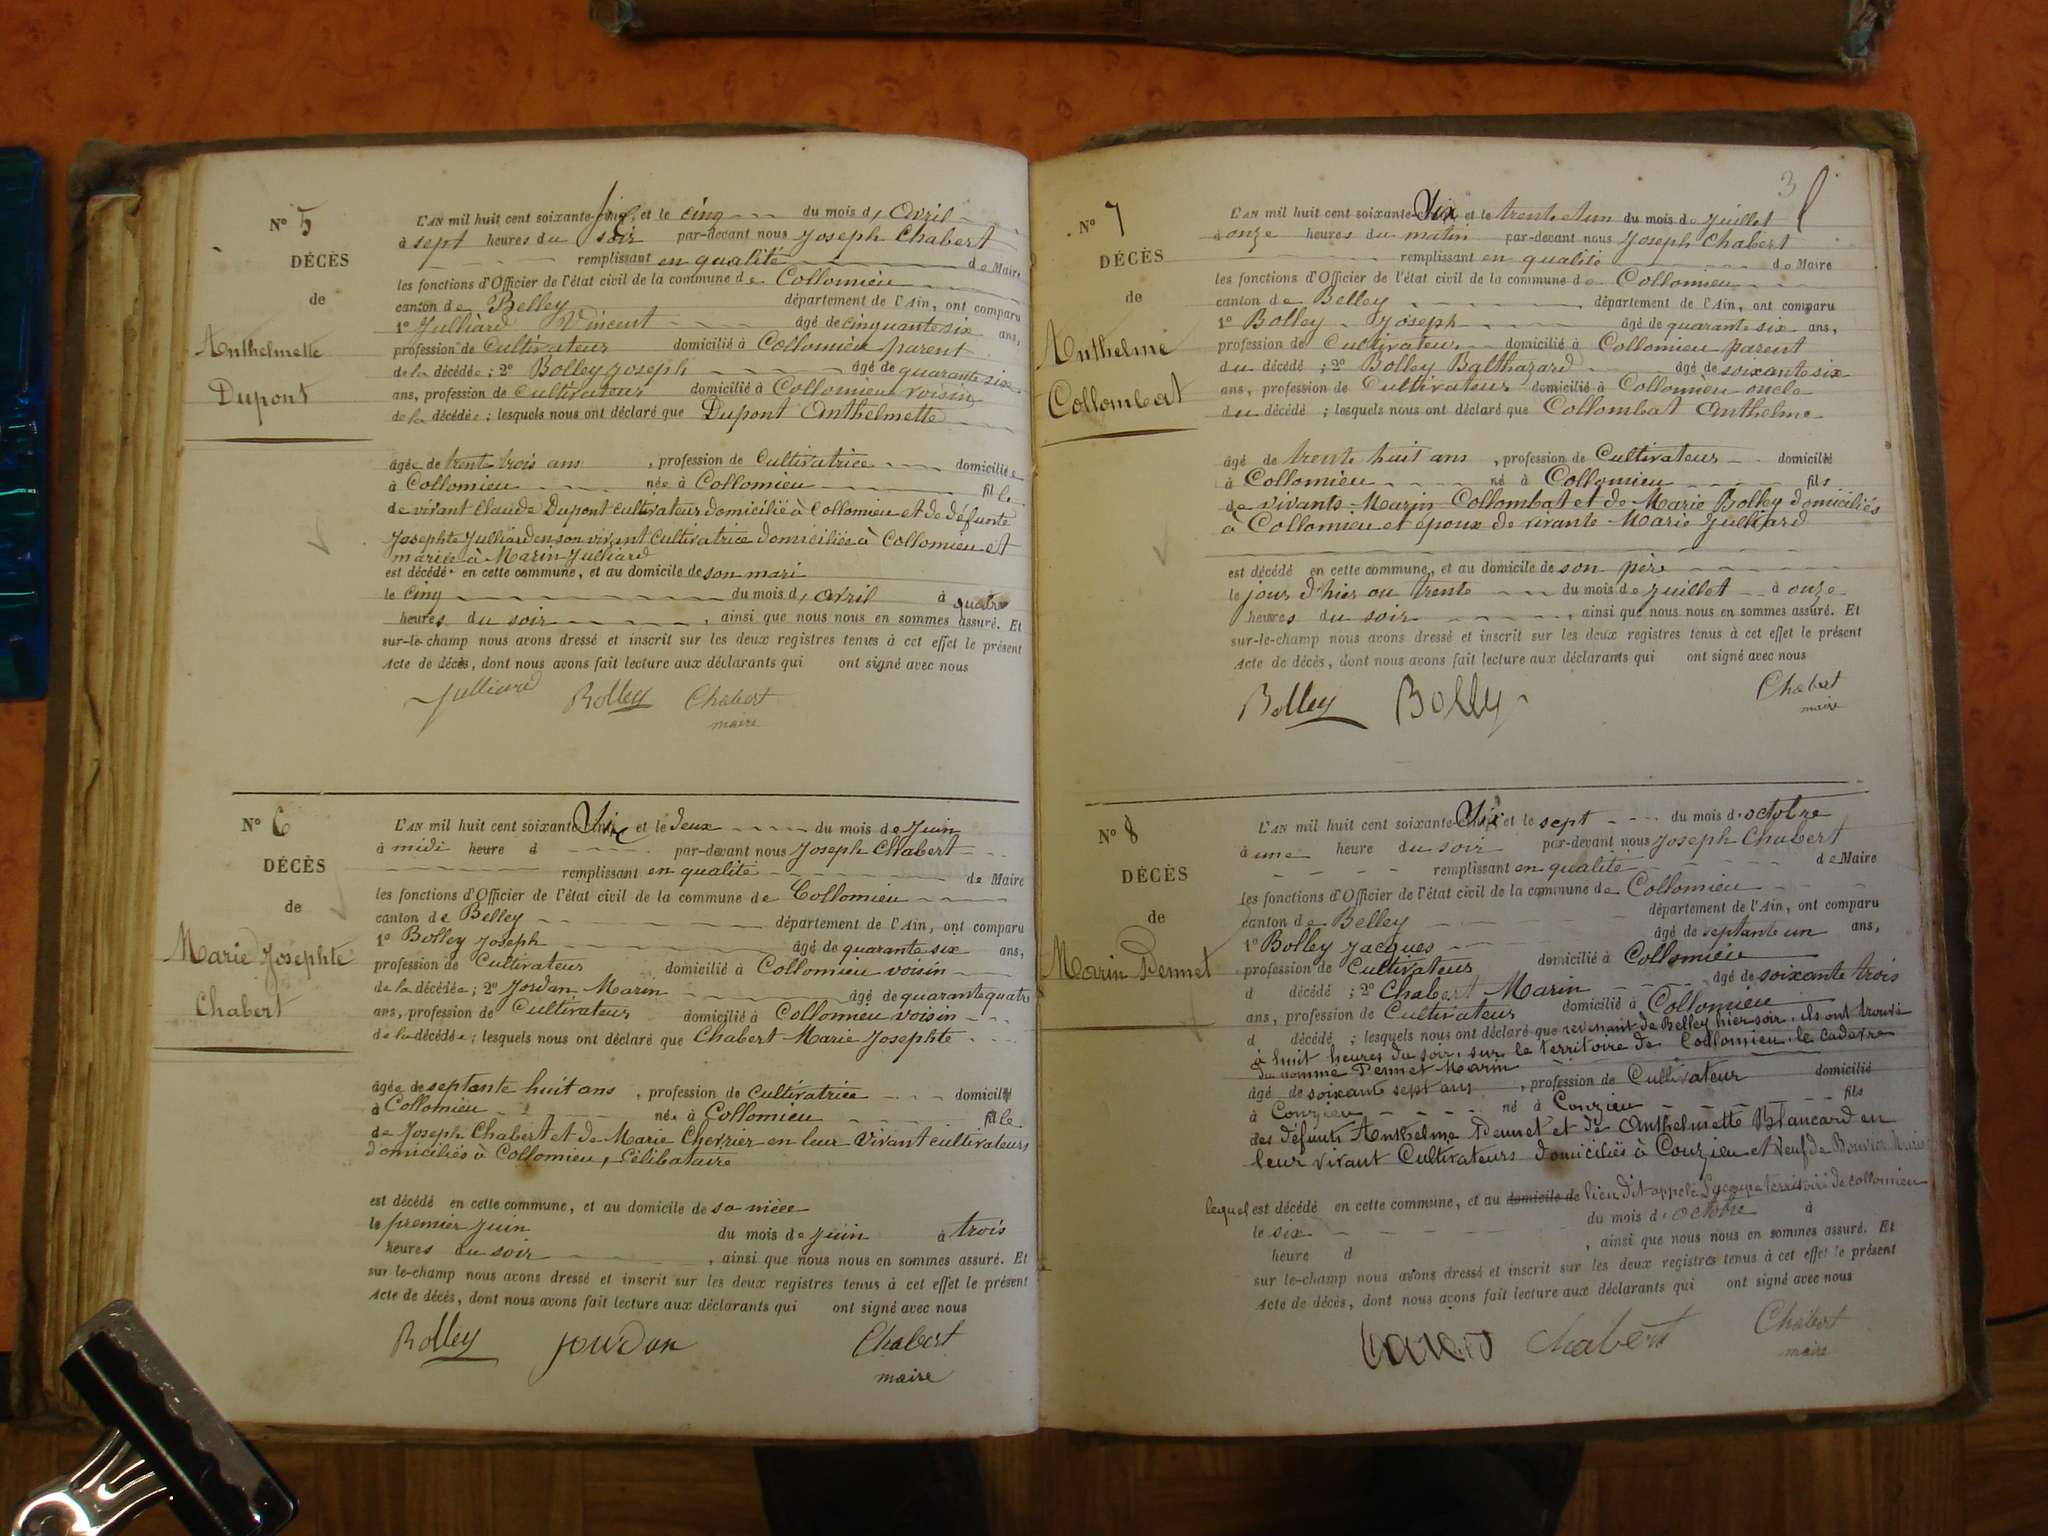 N° 5
DÉCÈS
de
Anthelmette
Dupont
L'AN mil huit cent soixante-six et le cinq du mois d'Avril
à sept heures du soir par-devant nous Joseph Chabert
remplissant en qualité de Maire
les fonctions d'Officier de l'état civil de la commune de Collomieu
canton de Belley département de l'Ain, ont comparu
1° Julliard Vincent âgé de cinquante six ans,
profession de Cultivateur domicilié à Collomieu parent
de la décédée ; 2° Bolley Joseph âgé de quarante six
ans, profession de Cultivateur domicilié à Collomieu voisin
de la décédée ; lesquels nous ont déclaré que Dupont Anthelmette
âgée de trente trois ans , profession de Cultivatrice domiciliée
à Collomieu née à Collomieu fille
de vivant Claude Dupont cultivateur domicilié à Collomieu et de défunte
Josephte Julliard en son vivant Cultivatrice domiciliée à Collomieu et
mariée à Marin Julliard
est décédée en cette commune, et au domicile de son mari
le cinq du mois d'avril à quatre
heures du soir , ainsi que nous nous en sommes assuré. Et
sur-le-champ nous avons dressé et inscrit sur les deux registres tenus à cet effet le présent
Acte de décès, dont nous avons fait lecture aux déclarants qui ont signé avec nous
Julliard Bolley Chabert
maire
N° 6
DÉCÈS
de
Marie Josephte
Chabert
L'AN mil huit cent soixante-six et le deux du mois de Juin
à midi heure d par-devant nous Joseph Chabert
remplissant en qualité de Maire
les fonctions d'Officier de l'état civil de la commune de Collomieu
canton de Belley département de l'Ain, ont comparu
1° Bolley Joseph âgé de quarante six ans,
profession de Cultivateur domicilié à Collomieu voisin
de la décédée ; 2° Jordan Marin âgé de quarante quatre
ans, profession de Cultivateur domicilié à Collomieu voisin
de la décédée ; lesquels nous ont déclaré que Chabert Marie Josephte
âgée de septante huit ans , profession de Cultivatrice domicilié
à Collomieu née à Collomieu fille
de Joseph Chabert et de Marie Chevrier en leur vivant cultivateurs
domiciliés à Collomieu, Célibataire
est décédé en cette commune, et au domicile de sa nièce
le premier juin du mois de juin à trois
heures du soir , ainsi que nous nous en sommes assuré. Et
sur le-champ nous avons dressé et inscrit sur les deux registres tenus à cet effet le présent
Acte de décès, dont nous avons fait lecture aux déclarants qui ont signé avec nous
Bolley Jourdan Chabert
maire
3
N° 7
DÉCÈS
de
Anthelme
Collombat
L'AN mil huit cent soixante-six et le trente et un du mois de Juillet
à onze heures du matin par-devant nous Joseph Chabert
remplissant en qualité de Maire
les fonctions d'Officier de l'état civil de la commune de Collomieu
canton de Belley département de l'Ain, ont comparu
1° Bolley Joseph âgé de quarante six ans,
profession de Cultivateur domicilié à Collomieu parent
du décédé ; 2° Bolley Balthazard âgé de soixante six
ans, profession de Cultivateur domicilié à Collomieu oncle
du décédé ; lesquels nous ont déclaré que Collombat Anthelme
âgé de trente huit ans , profession de Cultivateur domicilié
à Collomieu né à Collomieu fils
de vivants Marin Collombat et de Marie Bolley domiciliés
à Collomieu et époux de vivante Marie Julliard
est décédé en cette commune, et au domicile de son père
le jour d'hier ou trente du mois de juillet à onze
heures du soir , ainsi que nous nous en sommes assuré. Et
sur-le-champ nous avons dressé et inscrit sur les deux registres tenus à cet effet le présent
Acte de décès, dont nous avons fait lecture aux déclarants qui ont signé avec nous
Bolley Bolley Chabert
maire
N° 8
DÉCÈS
de
Marin Pennet
L'AN mil huit cent soixante-six et le sept du mois d'octobre
à une heure du soir par-devant nous Joseph Chabert
remplissant en qualité de Maire
les fonctions d'Officier de l'état civil de la commune de Collomieu
canton de Belley département de l'Ain, ont comparu
1° Bolley Jacques âgé de septante un ans,
profession de Cultivateur domicilié à Collomieu
d décédé ; 2° Chabert Marin âgé de soixante trois
ans, profession de Cultivateur domicilié à Collomieu
d décédé ; lesquels nous ont déclaré que revenant de Belley hier soir, ils ont trouvé
à huit heures du soir, sur le territoire de Collomieu, le cadavre
du nommé Pennet Marin
âgé de soixante sept ans , profession de Cultivateur domicilié
à Conzieu né à Conzieu fils
des défunts Anthelme Pennet et de Anthelmette Blancard en
leur vivant Cultivateurs domiciliés à Conzieu et Veuf de Bouvier Marie
lequel est décédé en cette commune, et au domicile de lieu dit appelé territoire de Collomieu
le six du mois d'octobre à
heure d , ainsi que nous nous en sommes assuré. Et
sur-le-champ nous avons dressé et inscrit sur les deux registres tenus à cet effet le présent
Acte de décès, dont nous avons fait lecture aux déclarants qui ont signé avec nous
Chabert Chabert
maire